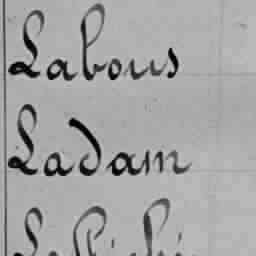 Labous
Ladam